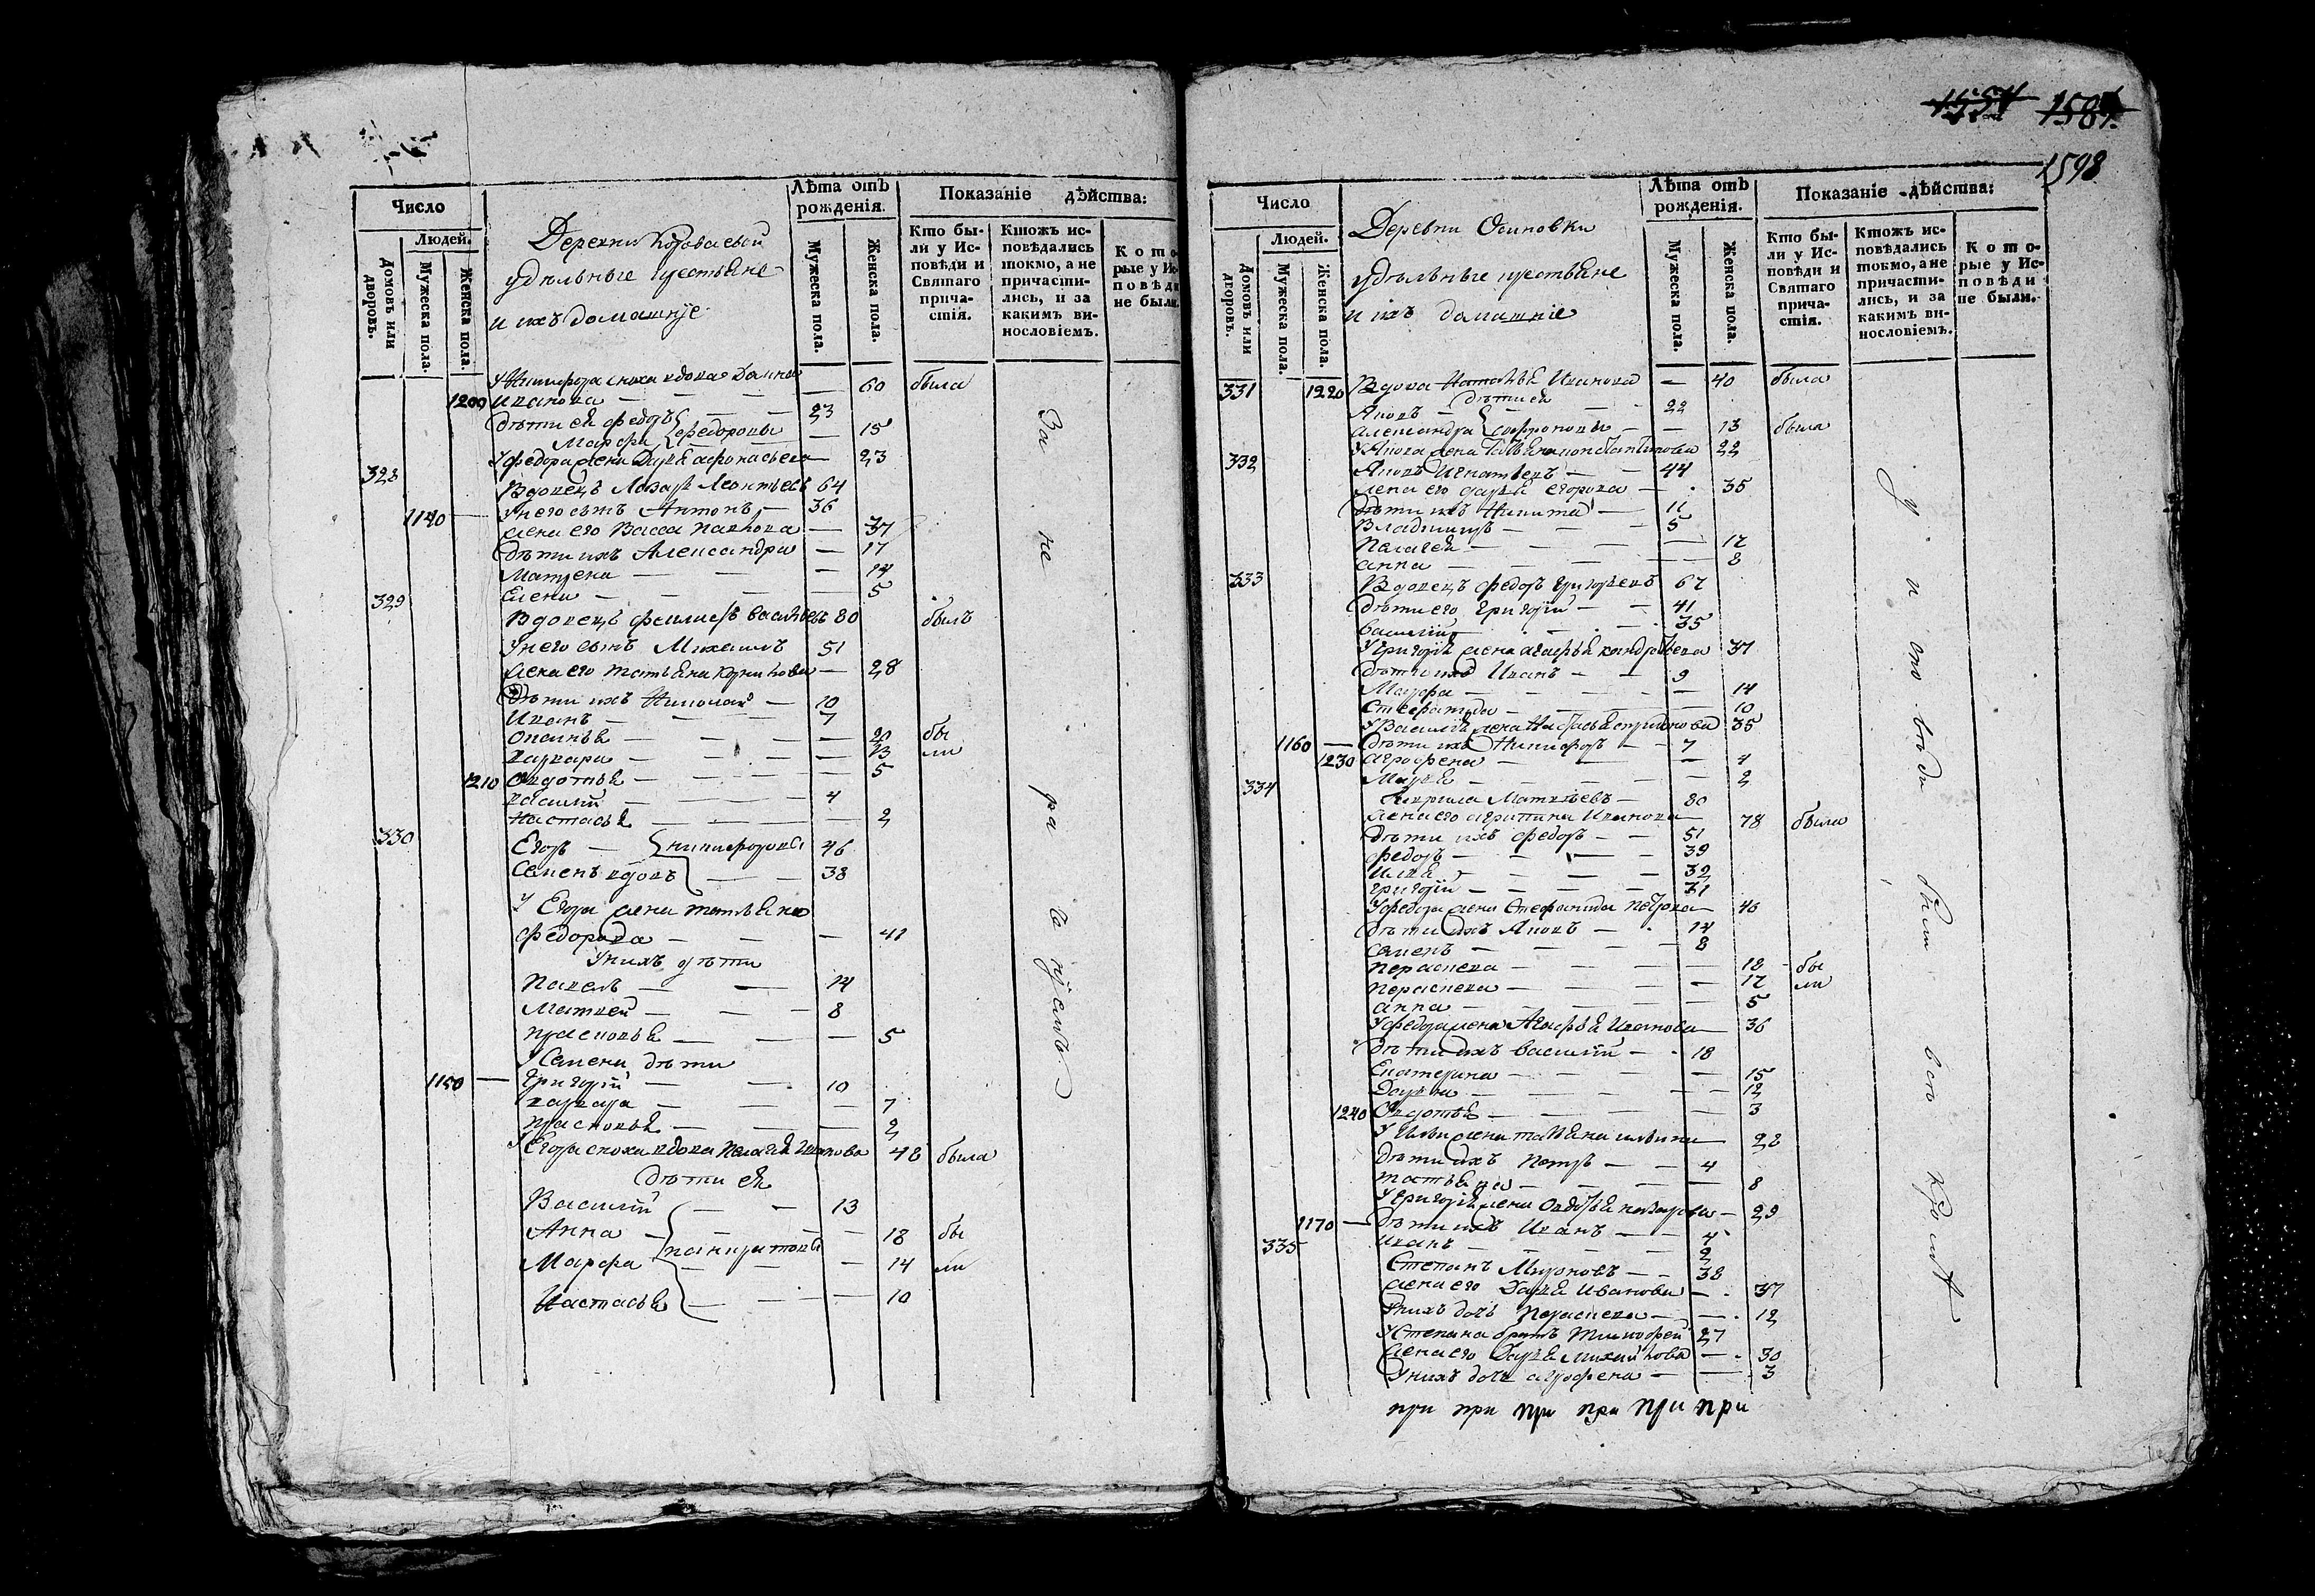 1554 1587.
1598
Число
Людей.
Домовъ или дворовъ.
Мужеска пола.
Женска пола.
Деревни Короваевой
удѣльные крестьяне
и ихъ домашніе
Лѣта отъ рожденія.
Мужеска пола.
Женска пола.
Показаніе дѣйства:
Кто были у Исповѣди и Святаго причастія.
Ктожъ исповѣдались токмо, а не причастились, и за какимъ винословіемъ.
Которые у Исповѣди не были.
У Никифора сноха вдова
1200 Иванова — — — — 60 была
Дѣти ея Федоръ — — 23
Марфа Федоровы — 15
У Федора жена Дарья Афонасьева — 23
328 Вдовецъ Лазарь Леонтьевъ 64
1140 — У него сынъ Антонъ — 36
жена его Васса Павлова — 37
Дѣти ихъ Александра — 17
Матрена — — — 14
Елена — — — — 5
329 Вдовецъ Филипъ Васильевъ 80 былъ
У него сынъ Михаилъ 51
жена его Татьяна Корнилова — 28
Дѣти ихъ Николай — 10
Иванъ — — — 7
— — — — 20 бы
Варвара — — — — 13 ли
1210 Авдотья — — — — 5
Василій — — — 4
Настасья — — — — 2
330 Егоръ — Никифоровы 46
Семенъ вдовъ — — 38
У Егора жена Татьяна
Федорова — — — 41
У нихъ дѣти
Павелъ — — 14
Матвей — — — 8
Прасковья — — — 5
У Семена дѣти
1150 — Григорій — — 10
Варвара — — — 7
Прасковья — — — 2
У Егора сноха вдова Пелагея Иванова 48 была
Дѣти ея
Василій — — 13
Анна — — — — 18 бы
Марфа Панкратовы — — 14 ли
Настасья — — — 10
За не ра

Число
Людей.
Домовъ или дворовъ.
Мужеска пола.
Женска пола.
Деревни Осиновки
удѣльные крестьяне
и ихъ домашніе
Лѣта отъ рожденія.
Мужеска пола.
Женска пола.
Показаніе дѣйства:
Кто были у Исповѣди и Святаго причастія.
Ктожъ исповѣдались токмо, а не причастились, и за какимъ винословіемъ.
Которые у Исповѣди не были.
331 1220 Вдова Наталья Иванова — 40 была
Дѣти ея
Яковъ — — — 22
Александра Софроновы — — 13 была
У Якова жена Татьяна Константинова 22
332 Яковъ Игнатьевъ — — 44
жена его Дарья Егорова — 35
Дѣти ихъ Никита — 11
Владимиръ — — — 5
Пелагея — — — — 12
Анна — — — — 8
333 Вдовецъ Федоръ Григорьевъ 67
Дѣти его Григорій — — 41
Василій — — — 35
У Григорія жена Агафья Кондратьева 37
Дѣти ихъ Иванъ — — 9
Марфа — — — — 14
Степанида — — — — 10
У Василія жена Настасья 35
1160 — Дѣти ихъ Никифоръ — — 7
1230 Агрофена — — — 4
Марья — — — — 2
334 Кирила Матвѣевъ — 80
жена его Агрипина Иванова — 78 была
Дѣти ихъ Федоръ — — 51
Федоръ — — — — 39
Илья — — — — 32
Григорій — — — — 31
У Федора жена Степанида Петрова — 46
Дѣти ихъ Яковъ — 14
Семенъ — — — — 8
Параскева — — — — 18 бы
Параскева — — — — 12 ли
Анна — — — — 5
У Федора жена Агафья Иванова — 36
Дѣти ихъ Василій — 18
Екатерина — — — — 15
Дарья — — — — 12
1240 Авдотья — — — — 3
У Ильи жена Татьяна — 28
Дѣти ихъ Петръ — — 4
Татьяна — — — — 8
У Григорія жена Авдотья — 29
1170 — Дѣти ихъ Иванъ — — 4
Иванъ — — — — 2
335 Степанъ Мироновъ — — 38
жена его Дарья Иванова — 37
У нихъ дочь Параскева — — 12
У Степана братъ Тимофей 27
жена его Дарья Михайлова — 30
У нихъ дочь Агрофена — — 3
при при при при при при